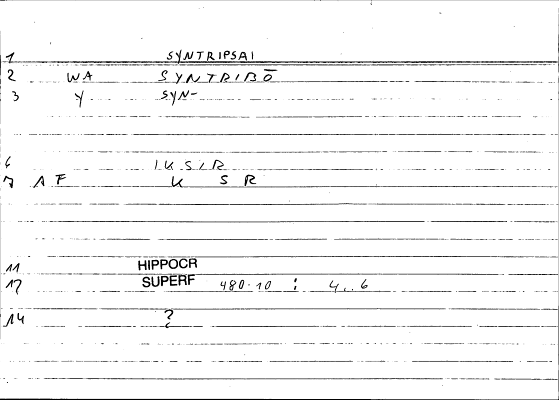 1 SYNTRIPSAI
2 WA SYNTRIBŌ
3 Y SYN-
6 IKSIR
7 AF K S R
11 HIPPOCR
12 SUPERF 480.10 : 4..6
14 ?